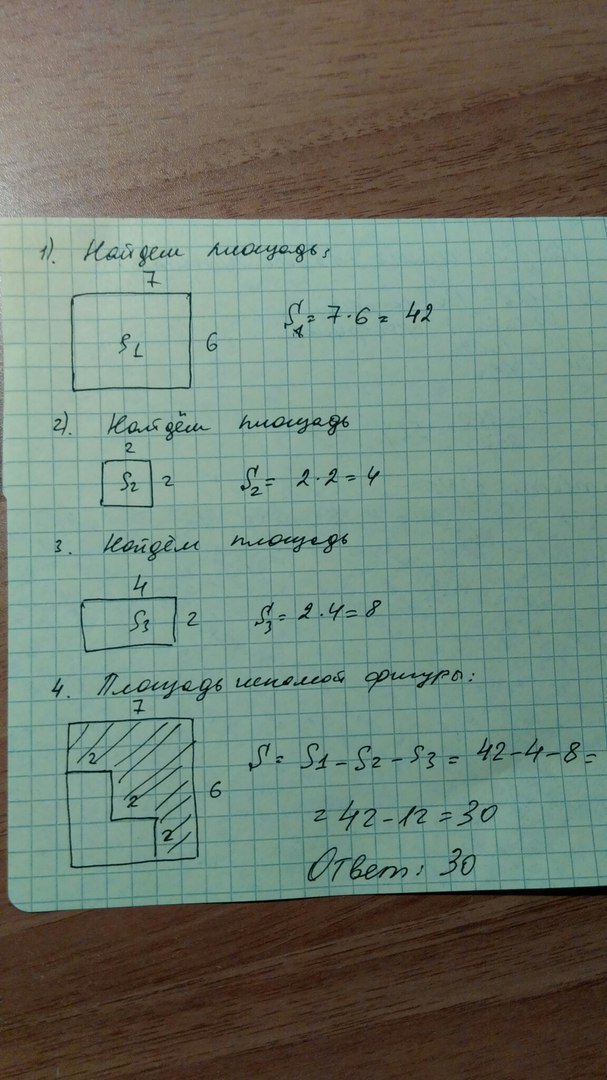 1). Найдем площадь:
7
S1
6
S1 = 7·6 = 42
2). Найдём площадь
2
S2
2
S2 = 2·2 = 4
3. Найдём площадь
4
S3
2
S3 = 2·4 = 8
4. Площадь искомой фигуры:
7
2
2
2
6
S = S1 - S2 - S3 = 42 - 4 - 8 =
= 42 - 12 = 30
Ответ: 30